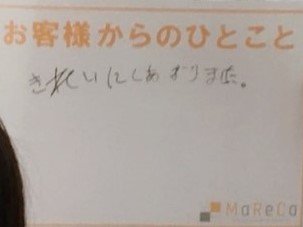 お客様からのひとこと
きれいにしあがりました。
MaReCa